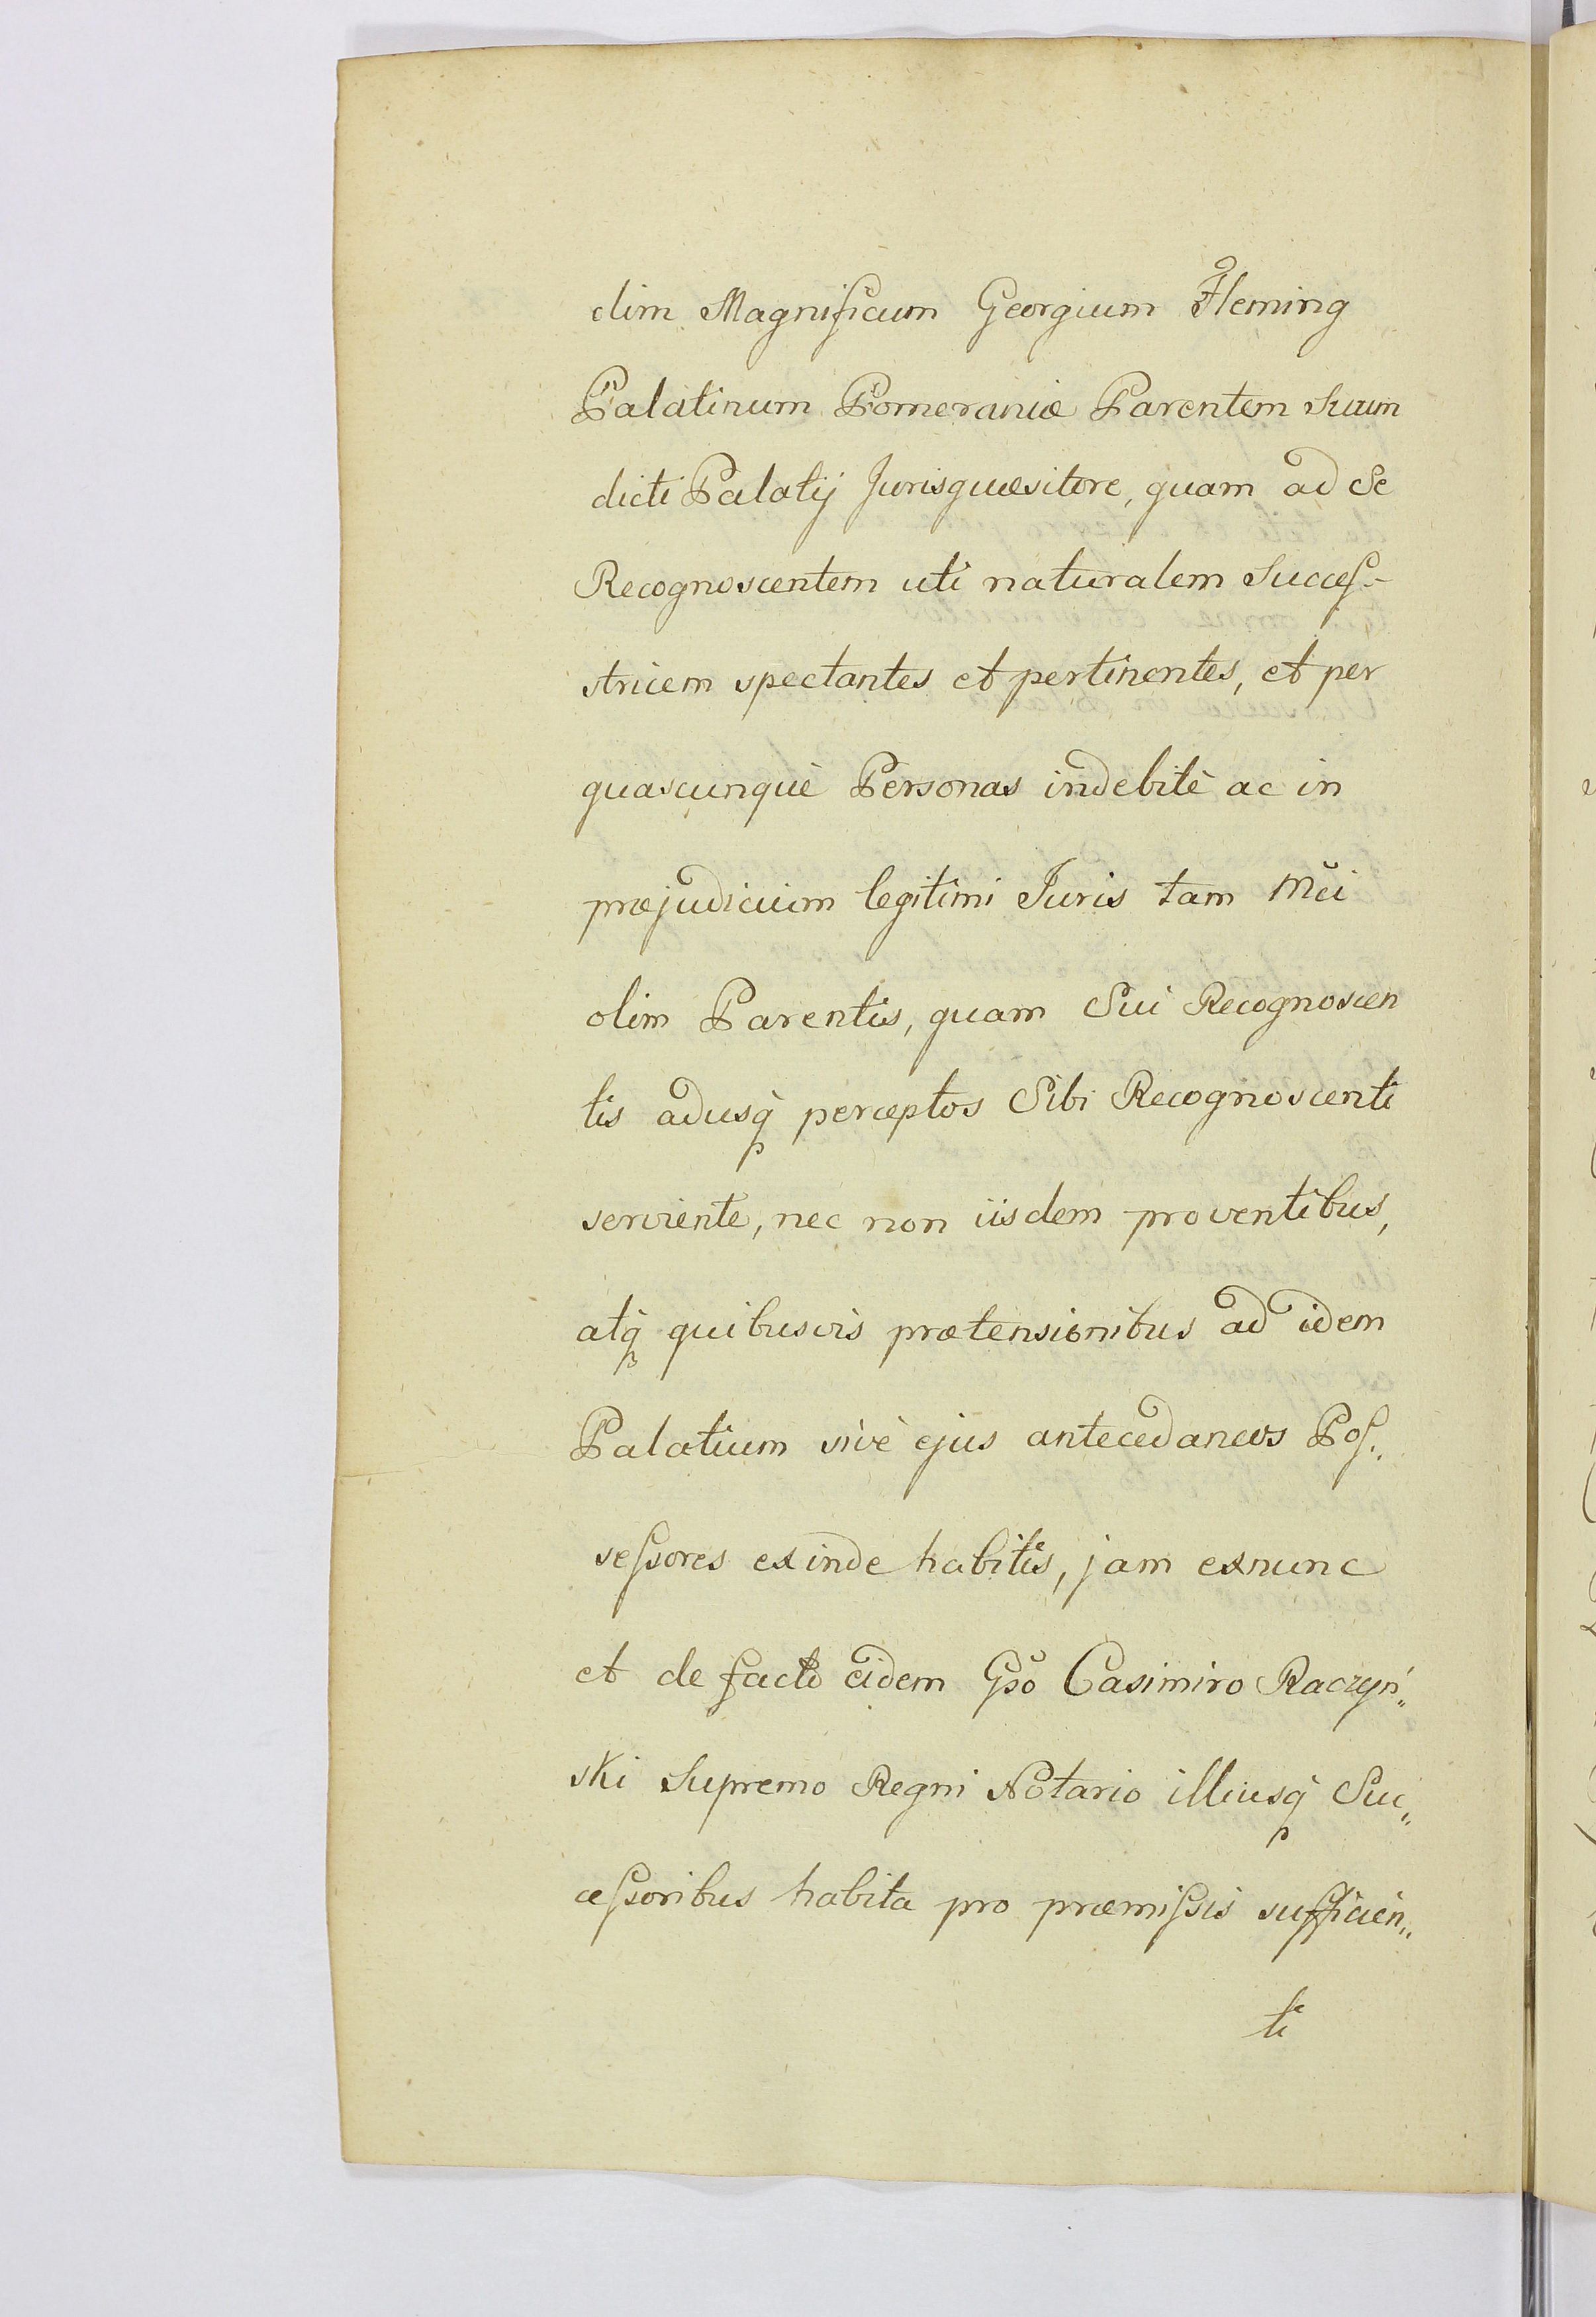 olim Magnificum Georgium Fleming
Palatinum Pomeraniæ Parentem Suum
dicti Palatij Jurisquæsitore, quam ad Se
Recognoscentem uti naturalem Succeſ-
stricem spectantes et pertinentes, et per
quascunquè Personas indebitè ac in
præjudicium legitimi Juris tam Mci
olim Parentis, quam Sui Recognoscen
tis adusq perceptos Sibi Recognoscenti
serviente, nec non iisdem proventibus,
atq quibusvis prætensionibus ad idem
Palatium sivè ejus antecedaneos Poſ.
seſsores exinde habitis, jam exnunc
et de facto eidem Gso Casimiro Raczyń„
ski Supremo Regni Notario illiusq Suc„
ceſsoribus habita pro præmiſsis sufficien„
ti